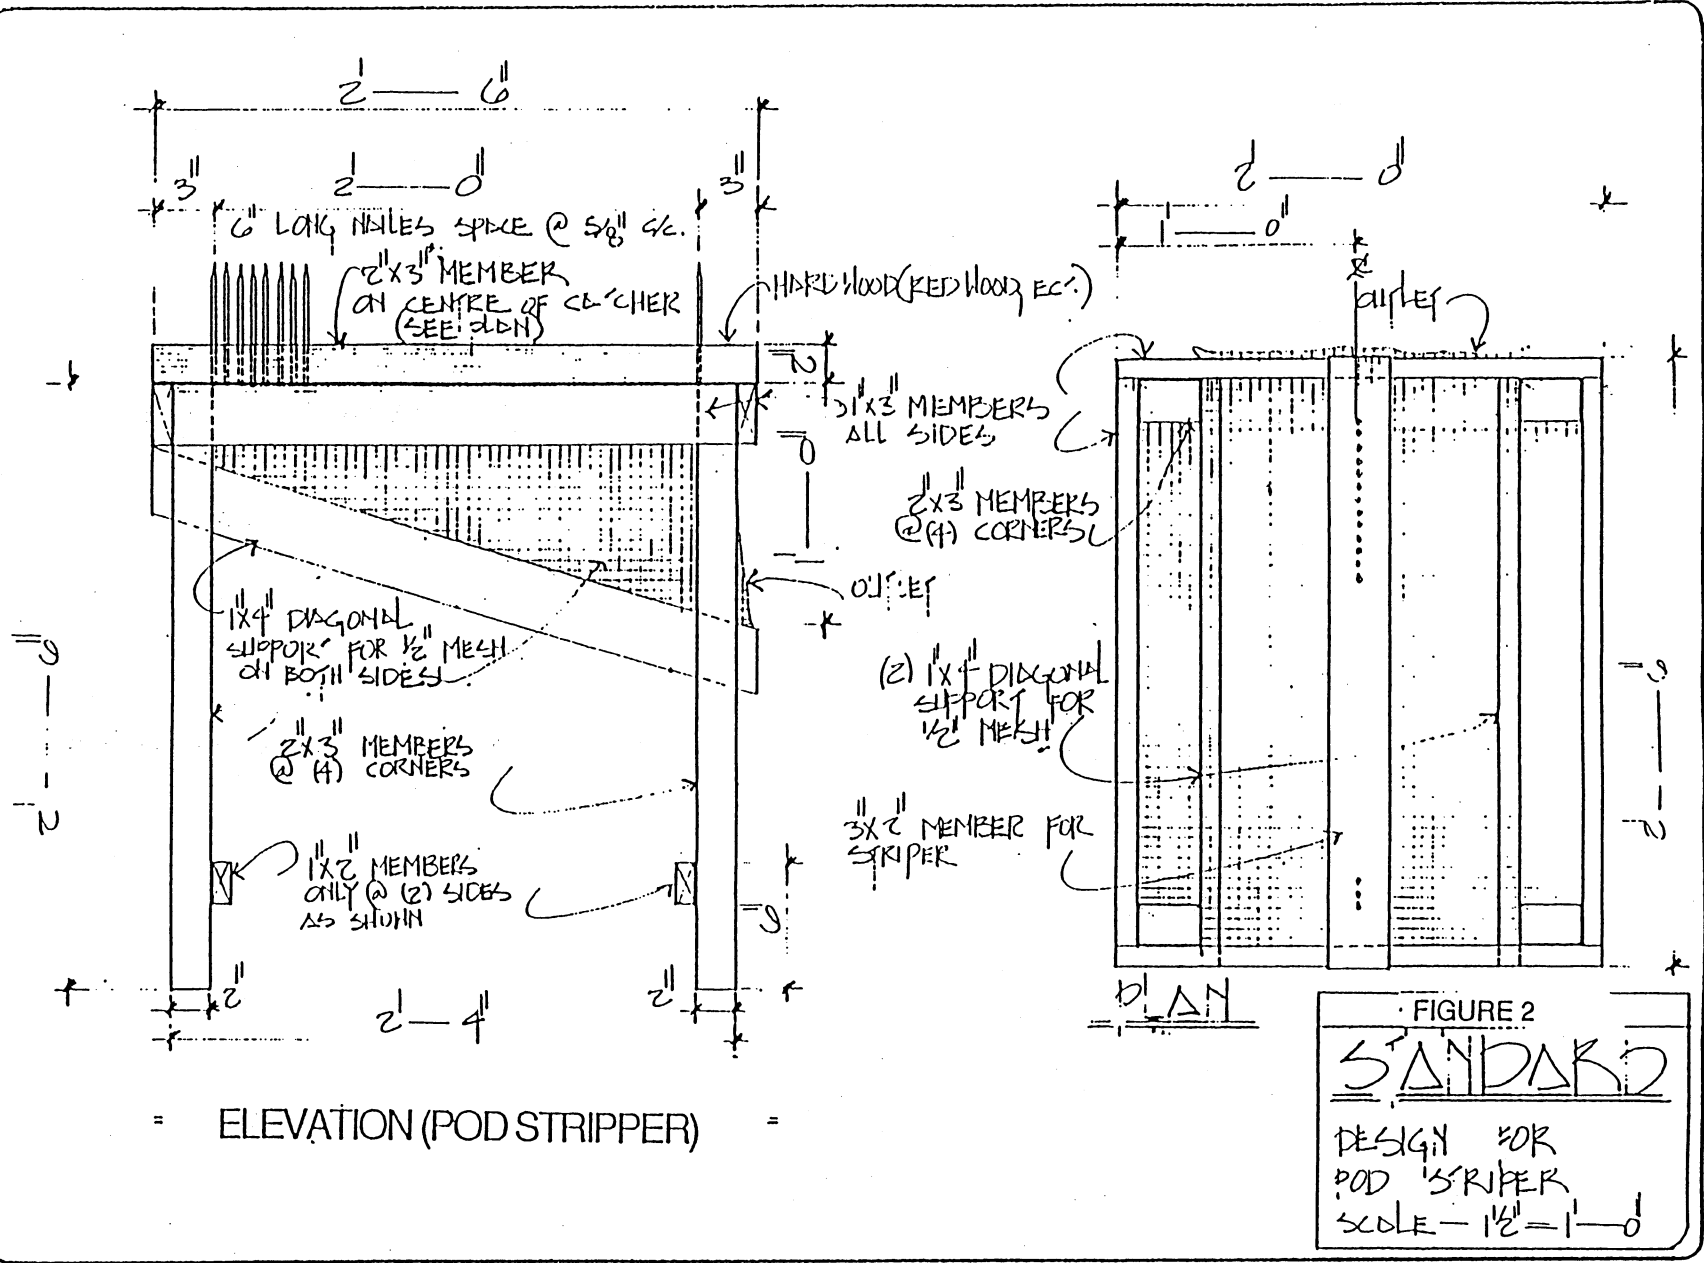 2'—6"
3"
2'—0"
3"
6" LONG NAILES SPACE @ 5/8" c/c.
2"X3" MEMBER
ON CENTRE OF CATCHER
(SEE PLAN)
HARDWOOD (REDWOOD, ECT.)
2"
1"X3" MEMBERS
ALL SIDES
1'—0"
2"X3" MEMBERS
@ (4) CORNERS
OUTLET
1"X4" DIAGONAL
SUPPORT FOR 1/2" MESH
ON BOTH SIDES
2"X3" MEMBERS
@ (4) CORNERS
1"X2" MEMBERS
ONLY @ (2) SIDES
AS SHOWN
6"
2"
2"
2'—4"
ELEVATION (POD STRIPPER)
2'—0"
1'—0"
OUTLET
(2) 1"X4" DIAGONAL
SUPPORT FOR
1/2" MESH
3"X2" MEMBER FOR
STRIPER
PLAN
FIGURE 2
STANDARD
DESIGN FOR
POD STRIPER
SCALE — 1 1/2" = 1'—0"